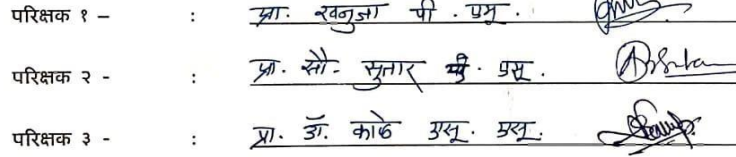 परिक्षक १ – : प्रा. खनुजा पी. एम.
परिक्षक २ - : प्रा. सौ. सुतार एस.
परिक्षक ३ - : प्रा. डॉ. काळे एस. एस.